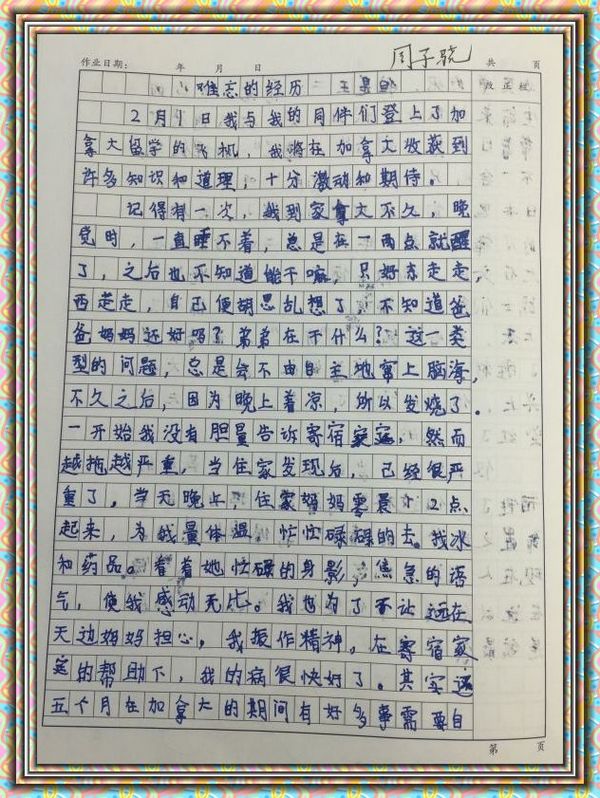 周子骁
作业日期： 年 月 日 共 页
难忘的经历 王
改正栏
2月1日我与我的同伴们登上了加
拿大留学的飞机，我将在加拿大收获到
许多知识和道理，十分激动和期待。
记得有一次，我到家拿大不久，晚
觉时，一直睡不着，总是在一两点就醒
了，之后也不知道能干嘛，只好东走走，
西走走，自己便胡思乱想了，不知道爸
爸妈妈还好吗？弟弟在干什么？这一类
型的问题，总是会不由自主地窜上脑海，
不久之后，因为晚上着凉，所以发烧了。
一开始我没有胆量告诉寄宿家庭，然而
越拖越严重，当住家发现后，已经很严
重了。当天晚上，住家妈妈零晨12点
起来，为我量体温，忙忙碌碌的去。我冰
和药品。看着她忙碌的身影，焦急的语
气，使我感动无比。我也为了不让远在
天边妈妈担心，我振作精神，在寄宿家
庭的帮助下，我的病很快好了。其实这
五个月在加拿大的期间有好多事需要自
第 页